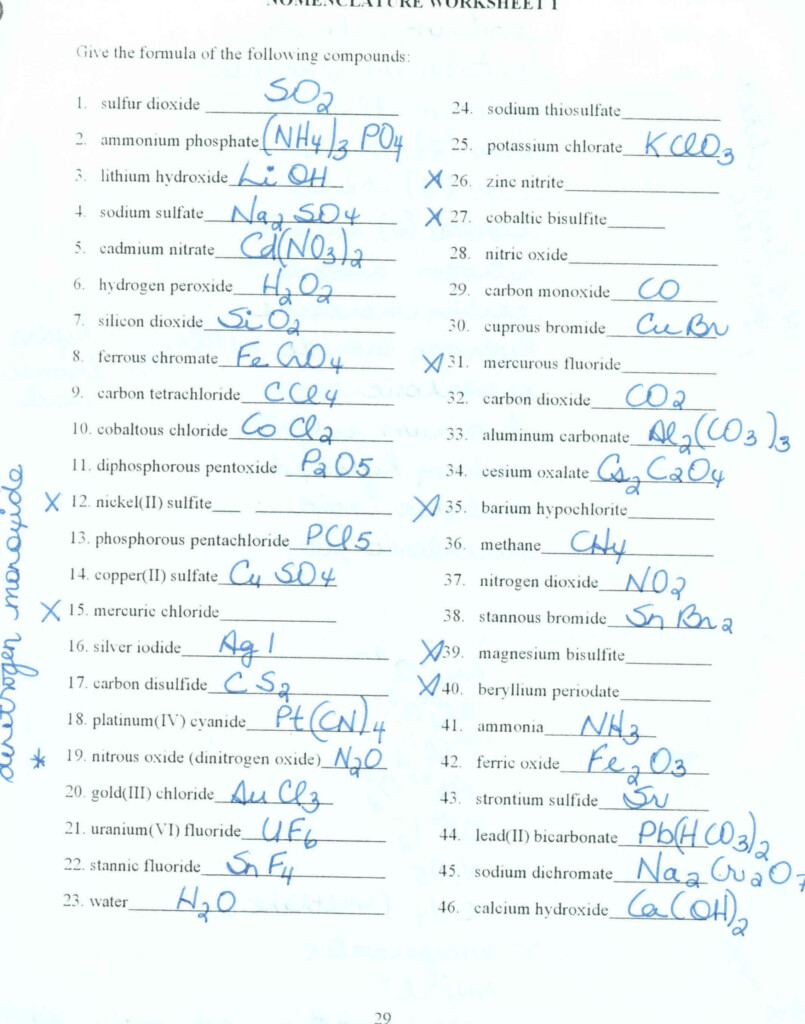 NOMENCLATURE WORKSHEET 1
Give the formula of the following compounds:
1. sulfur dioxide SO2
2. ammonium phosphate (NH4)3 PO4
3. lithium hydroxide Li OH
4. sodium sulfate Na2 SO4
5. cadmium nitrate Cd(NO3)2
6. hydrogen peroxide H2O2
7. silicon dioxide Si O2
8. ferrous chromate Fe CrO4
9. carbon tetrachloride CCl4
10. cobaltous chloride Co Cl2
11. diphosphorous pentoxide P2O5
X 12. nickel(II) sulfite
13. phosphorous pentachloride PCl5
14. copper(II) sulfate Cu SO4
X 15. mercuric chloride
16. silver iodide Ag I
17. carbon disulfide CS2
18. platinum(IV) cyanide Pt(CN)4
* 19. nitrous oxide (dinitrogen oxide) N2O
20. gold(III) chloride Au Cl3
21. uranium(VI) fluoride UF6
22. stannic fluoride Sn F4
23. water H2O
dinitrogen monoxide
24. sodium thiosulfate
25. potassium chlorate KClO3
X 26. zinc nitrite
X 27. cobaltic bisulfite
28. nitric oxide
29. carbon monoxide CO
30. cuprous bromide Cu Br
X 31. mercurous fluoride
32. carbon dioxide CO2
33. aluminum carbonate Al2(CO3)3
34. cesium oxalate Cs2 C2O4
X 35. barium hypochlorite
36. methane CH4
37. nitrogen dioxide NO2
38. stannous bromide Sn Br2
X 39. magnesium bisulfite
X 40. beryllium periodate
41. ammonia NH3
42. ferric oxide Fe2O3
43. strontium sulfide Sr
44. lead(II) bicarbonate Pb(HCO3)2
45. sodium dichromate Na2 Cr2O7
46. calcium hydroxide Ca(OH)2
29